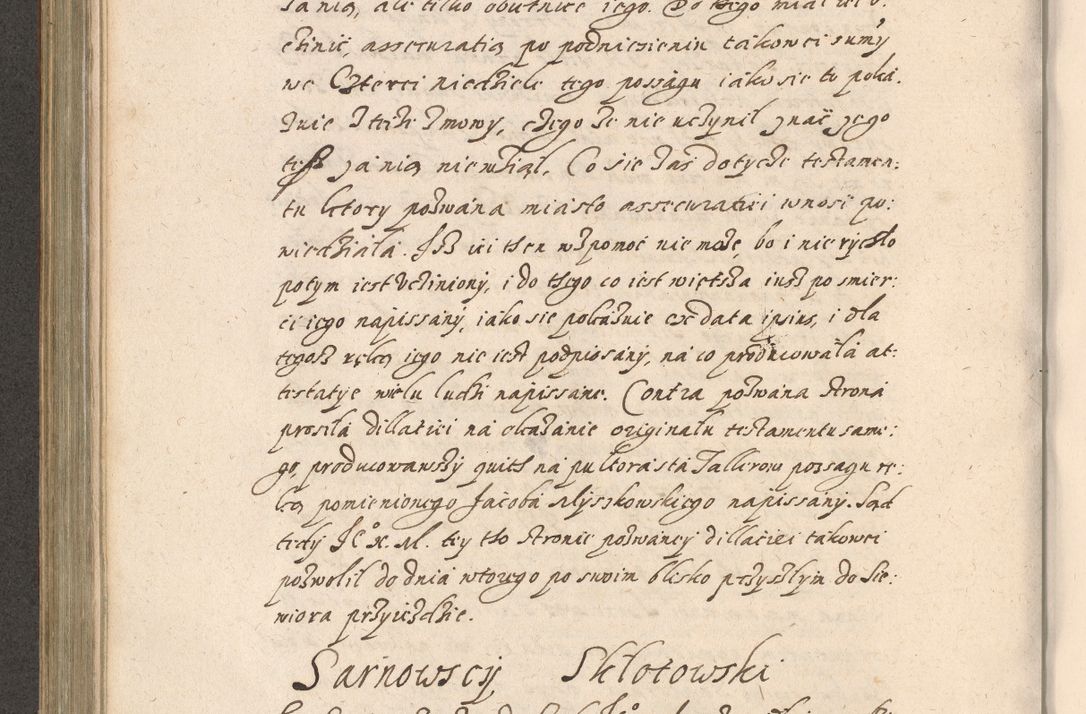 ja nią, ale tilko obietnice iego. Do tego miał ucz
czinić, assecuratią po podniesieniu takowei sumy
we Czterei niedziele tego possagu iako sie to poka.
zuie z teize zmowy, czego że nie uczynił znać jego
tesz ja nią nie wział. Co sie zas dotycze testamen:
tu ktory pozwana miasto assecuratiei wnosi po:
wiedziała. Jsz iei then wspomoć nie może, bo i nie rychło
potym iest Ucziniony, i do thego co iest większa iusz po smier:
ci iego napissany, iako sie pokazuie ex data ipsius, i dla
tegosz ręką iego nie iest podpiosany, na co producowała at:
testatye wielu ludzi napissane. Contra pozwana strona
prosiła dillatiei na okazanie originału testamentu same:
go, producowawszy quith na pułtorasta Tallerow possagu rę:
ką pomienionego Jacoba Myszkowskiego napissany. Sąd
tedy Je° X. M. tey tho stronie pozwaney dillatiei takowei
pozwolił do dnia wtorego po swoim blisko przyszłym do Sie:
wiora przyiezdzie.
Sarnowscy Skłotowski